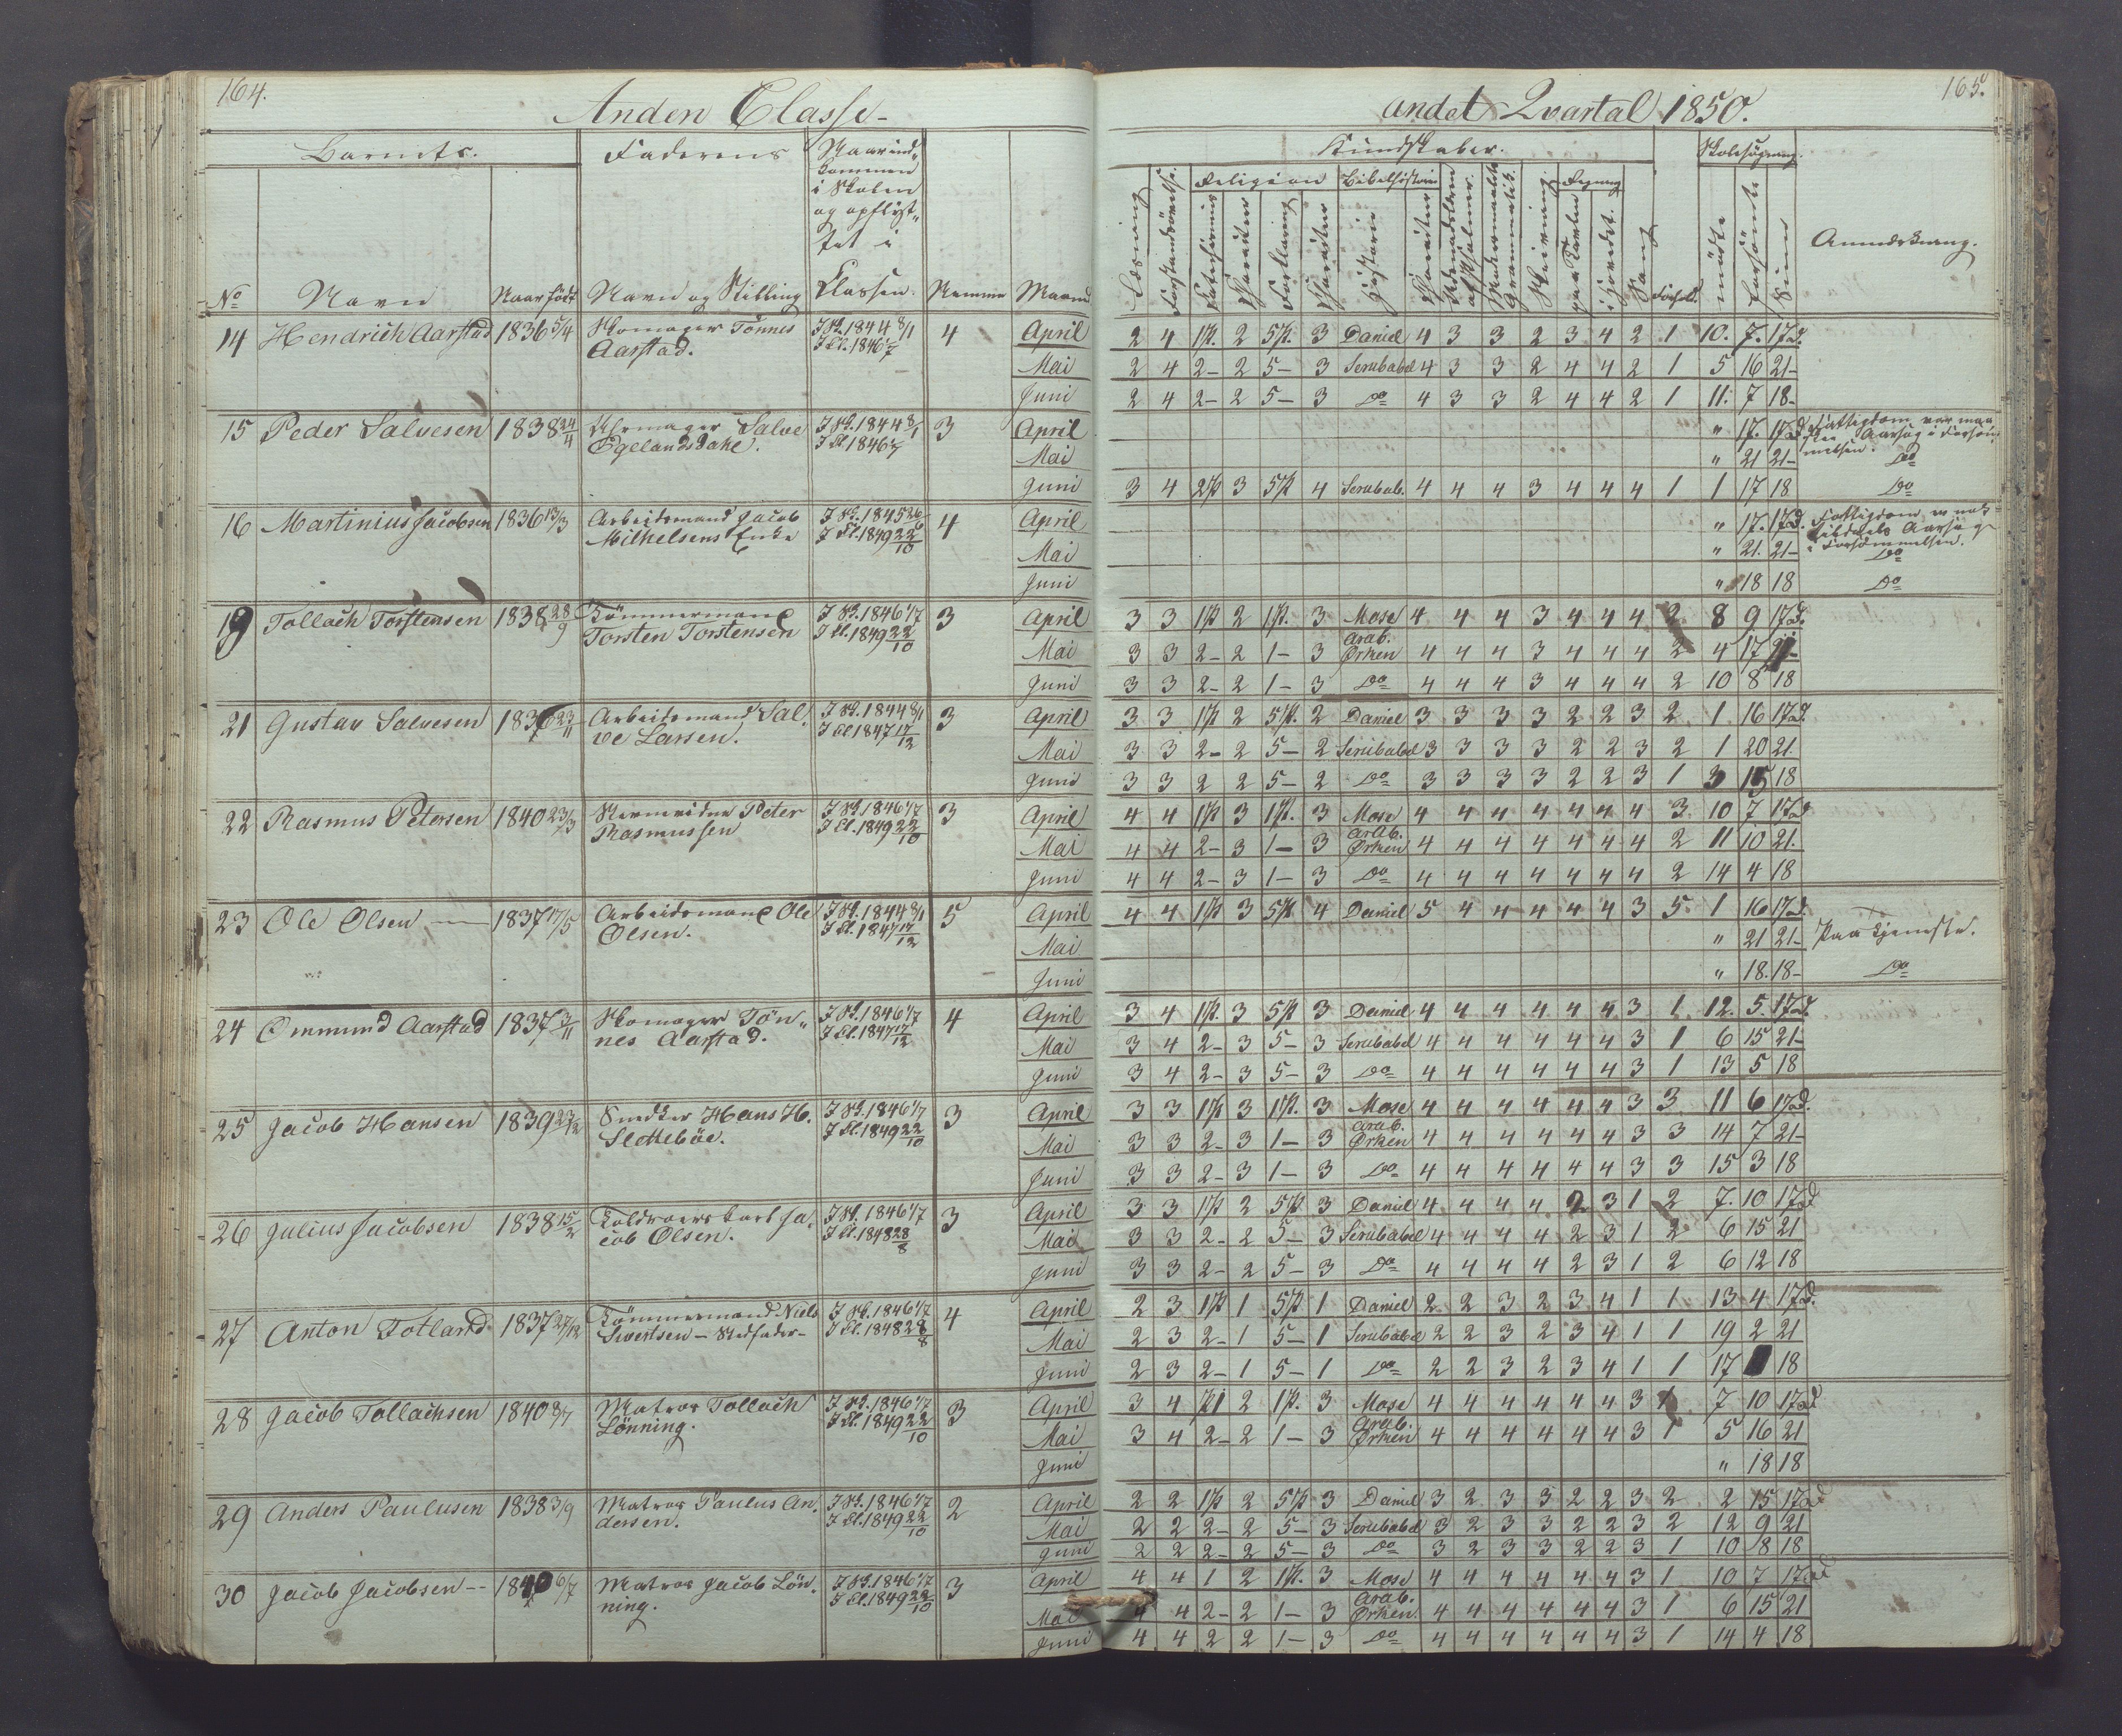 164.
Anden Classe-
Barnets.
Faderens
Naar ind-
kommen
i Skolen
og opflyt-
tet i
Classen.
No Navn Naar født Navn og Stilling Nemme Maaned
14 Hendrich Aarstad 1836 5/4 Skomager Tönnes Aarstad. I Sk. 1844 8/1 I Cl. 1846 1/7 4 April
Mai
Juni
15 Peder Salvesen 1838 24/4 Uhrmager Salve Egelandsdahl. I Sk. 1844 8/1 I Cl. 1846 1/7 3 April
Mai
Juni
16 Martinius Jacobsen 1836 13/3 Arbeidsmand Jacob Mikkelsens Enke I Sk. 1845 26/6 I Cl. 1849 22/10 4 April
Mai
Juni
19 Tollach Torstensen 1838 28/9 Tömmermand Torsten Torstensen I Sk. 1846 1/7 I Cl. 1849 22/10 3 April
Mai
Juni
21 Gustav Salvesen 1836 23/11 Arbeidsmand Salve Larsen. I Sk. 1844 8/1 I Cl. 1847 17/12 3 April
Mai
Juni
22 Rasmus Petersen 1840 23/3 Peter Rasmussen I Sk. 1846 1/7 I Cl. 1849 22/10 3 April
Mai
Juni
23 Ole Olsen 1837 17/5 Arbeidsmand Ole Olsen. I Sk. 1844 8/1 I Cl. 1847 17/12 5 April
Mai
Juni
24 Ommund Aarstad 1837 3/11 Skomager Tönnes Aarstad. I Sk. 1846 1/7 I Cl. 1847 17/12 4 April
Mai
Juni
25 Jacob Hansen 1839 23/12 Snedker Hans H. Slotteböe. I Sk. 1846 1/7 I Cl. 1849 22/10 3 April
Mai
Juni
26 Julius Jacobsen 1838 15/2 Jacob Olsen. I Sk. 1846 1/7 I Cl. 1848 28/8 3 April
Mai
Juni
27 Anton Totland 1837 27/12 Tömmermand Niels Sivertsen - Stedfader- I Sk. 1846 1/7 I Cl. 1848 28/8 4 April
Mai
Juni
28 Jacob Tollachsen 1840 8/7 Matros Tollach Lönning. I Sk. 1846 1/7 I Cl. 1849 22/10 3 April
Mai
Juni
29 Anders Paulusen 1838 3/9 Matros Paulus Andersen. I Sk. 1846 1/7 I Cl. 1849 22/10 2 April
Mai
Juni
30 Jacob Jacobsen -- 1840 6/7 Matros Jacob Lönning. I Sk. 1846 1/7 I Cl. 1849 22/10 3 April
Mai
Juni
165.
andet Qvartal 1850.
Kundskaber.
Skolesögning.
Religion Bibelhistorie Regning
Læsning Forstandsövelse Historie Skrivning paa Tavlen i Hovedet. Sang Forhold. mödte forsömte Sum Anmærkning.
2 4 1ste P. 2 5te P. 3 Daniel 4 3 3 2 3 4 2 1 10. 7. 17 D.
2 4 2- 2 5- 3 Serubabel 4 3 3 2 4 4 2 1 5 16 21-
2 4 2- 2 5- 3 Do 4 3 3 2 4 4 2 1 11. 7 18-
" 17. 17 D. Fattigdom var maaskee Aarsag i Forsömmelsen.
" 21 21- Do
3 4 2 P 3 5 P 4 Serubab. 4 4 4 3 4 4 4 1 1 17 18 Do
" 17. 17 D. Fattigdom Aarsag i Forsömmelsen.
" 21. 21- Do
" 18 18 Do
3 3 1 P 2 1 P. 3 Mose 4 4 4 3 4 4 4 2 8 9 17 D.
3 3 2- 2 1- 3 Arab. Ørken 4 4 4 3 4 4 4 2 4 17 21-
3 3 2- 2 1- 3 Do 4 4 4 3 4 4 4 2 10 8 18
3 3 1 P 2 5 P. 2 Daniel 3 3 3 3 2 2 3 2 1 16 17 D.
3 3 2- 2 5- 2 Serubabel 3 3 3 3 2 2 3 2 1 20 21.
3 3 2 2 5- 2 Do 3 3 3 3 2 2 3 1 3 15 18
4 4 1 P 3 1 P. 3 Mose 4 4 4 4 4 4 4 3 10 7 17 D
4 4 2- 3 1- 3 Arab. Ørken 4 4 4 4 4 4 4 2 11 10 21.
4 4 2- 3 1- 3 Do 4 4 4 4 4 4 4 2 14 4 18
4 4 1 P 3 5 P 4 Daniel 5 4 4 4 4 4 3 5. 1 16 17 D.
" 21 21- Paa Tjeneste.
" 18. 18- Do
3 4 1 P. 3 5 P 3 Daniel 4 4 4 4 4 4 3 1. 12. 5. 17 D.
3 4 2- 3 5- 3 Serubabel 4 4 4 4 4 4 3 1 6 15 21-
3 4 2- 3 5- 3 Do 4 4 4 4 4 4 3 1 13 5 18
3 3 1 P 3 1 P. 3 Mose 4 4 4 4 4 4 3 3 11 6 17 D.
3 3 2- 3 1- 3 Arab. Ørken 4 4 4 4 4 4 3 3 14 7 21-
3 3 2- 3 1- 3 Do 4 4 4 4 4 4 3 3 15 3 18
3 3 1 P 2 5 P. 3 Daniel 4 4 4 4 2 3 1 2 7. 10 17 D
3 3 2- 2 5- 3 Serubabel 4 4 4 4 2 3 1 2 6 15 21
3 3 2- 2 5- 3 Do 4 4 4 4 2 3 1 2 6 12 18
2 3 1 P 1 5 P 1 Daniel 2 2 3 2 3 4 1 1 13 4 17 D.
2 3 2- 1 5- 1 Serubabel 2 2 3 2 3 4 1 1 19 2 21
2 3 2- 1 5- 1 Do 2 2 3 2 3 4 1 1 17 18
3 4 P 1 2 1 P. 3 Mose 4 4 4 4 4 4 3 1 7 10 17 D
3 4 2- 2 1- 3 Arab. Ørken 4 4 4 4 4 4 3 1 5 16 21
" 18 18
2 2 1 P 2 5 P 3 Daniel 3 2 3 3 2 2 3 2 2 15 17 D
2 2 2- 2 5- 3 Serubabel 3 2 3 3 2 2 3 2 12 9 21
2 2 2- 2 5- 3 Do 3 2 3 3 2 2 3 1 10 8 18
4 4 1 2 1 P. 3 Mose 4 4 4 4 4 4 3 1 10 7 17 D
4 4 2- 2 1- 3 Arab. Ørken. 4 4 4 4 4 4 3 1 6 15 21
4 4 2 2 1- 3 Do 4 4 4 4 4 4 3 1 14 4 18